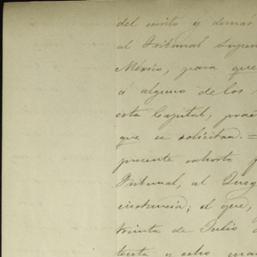 del exito y demás
al Tribunal Super
México, para que
á alguno de los
esta Capital, prac
que se solicitan. =
presente exhorto p
Tribunal, al Juzg
instancia; el que,
treinta de Julio d